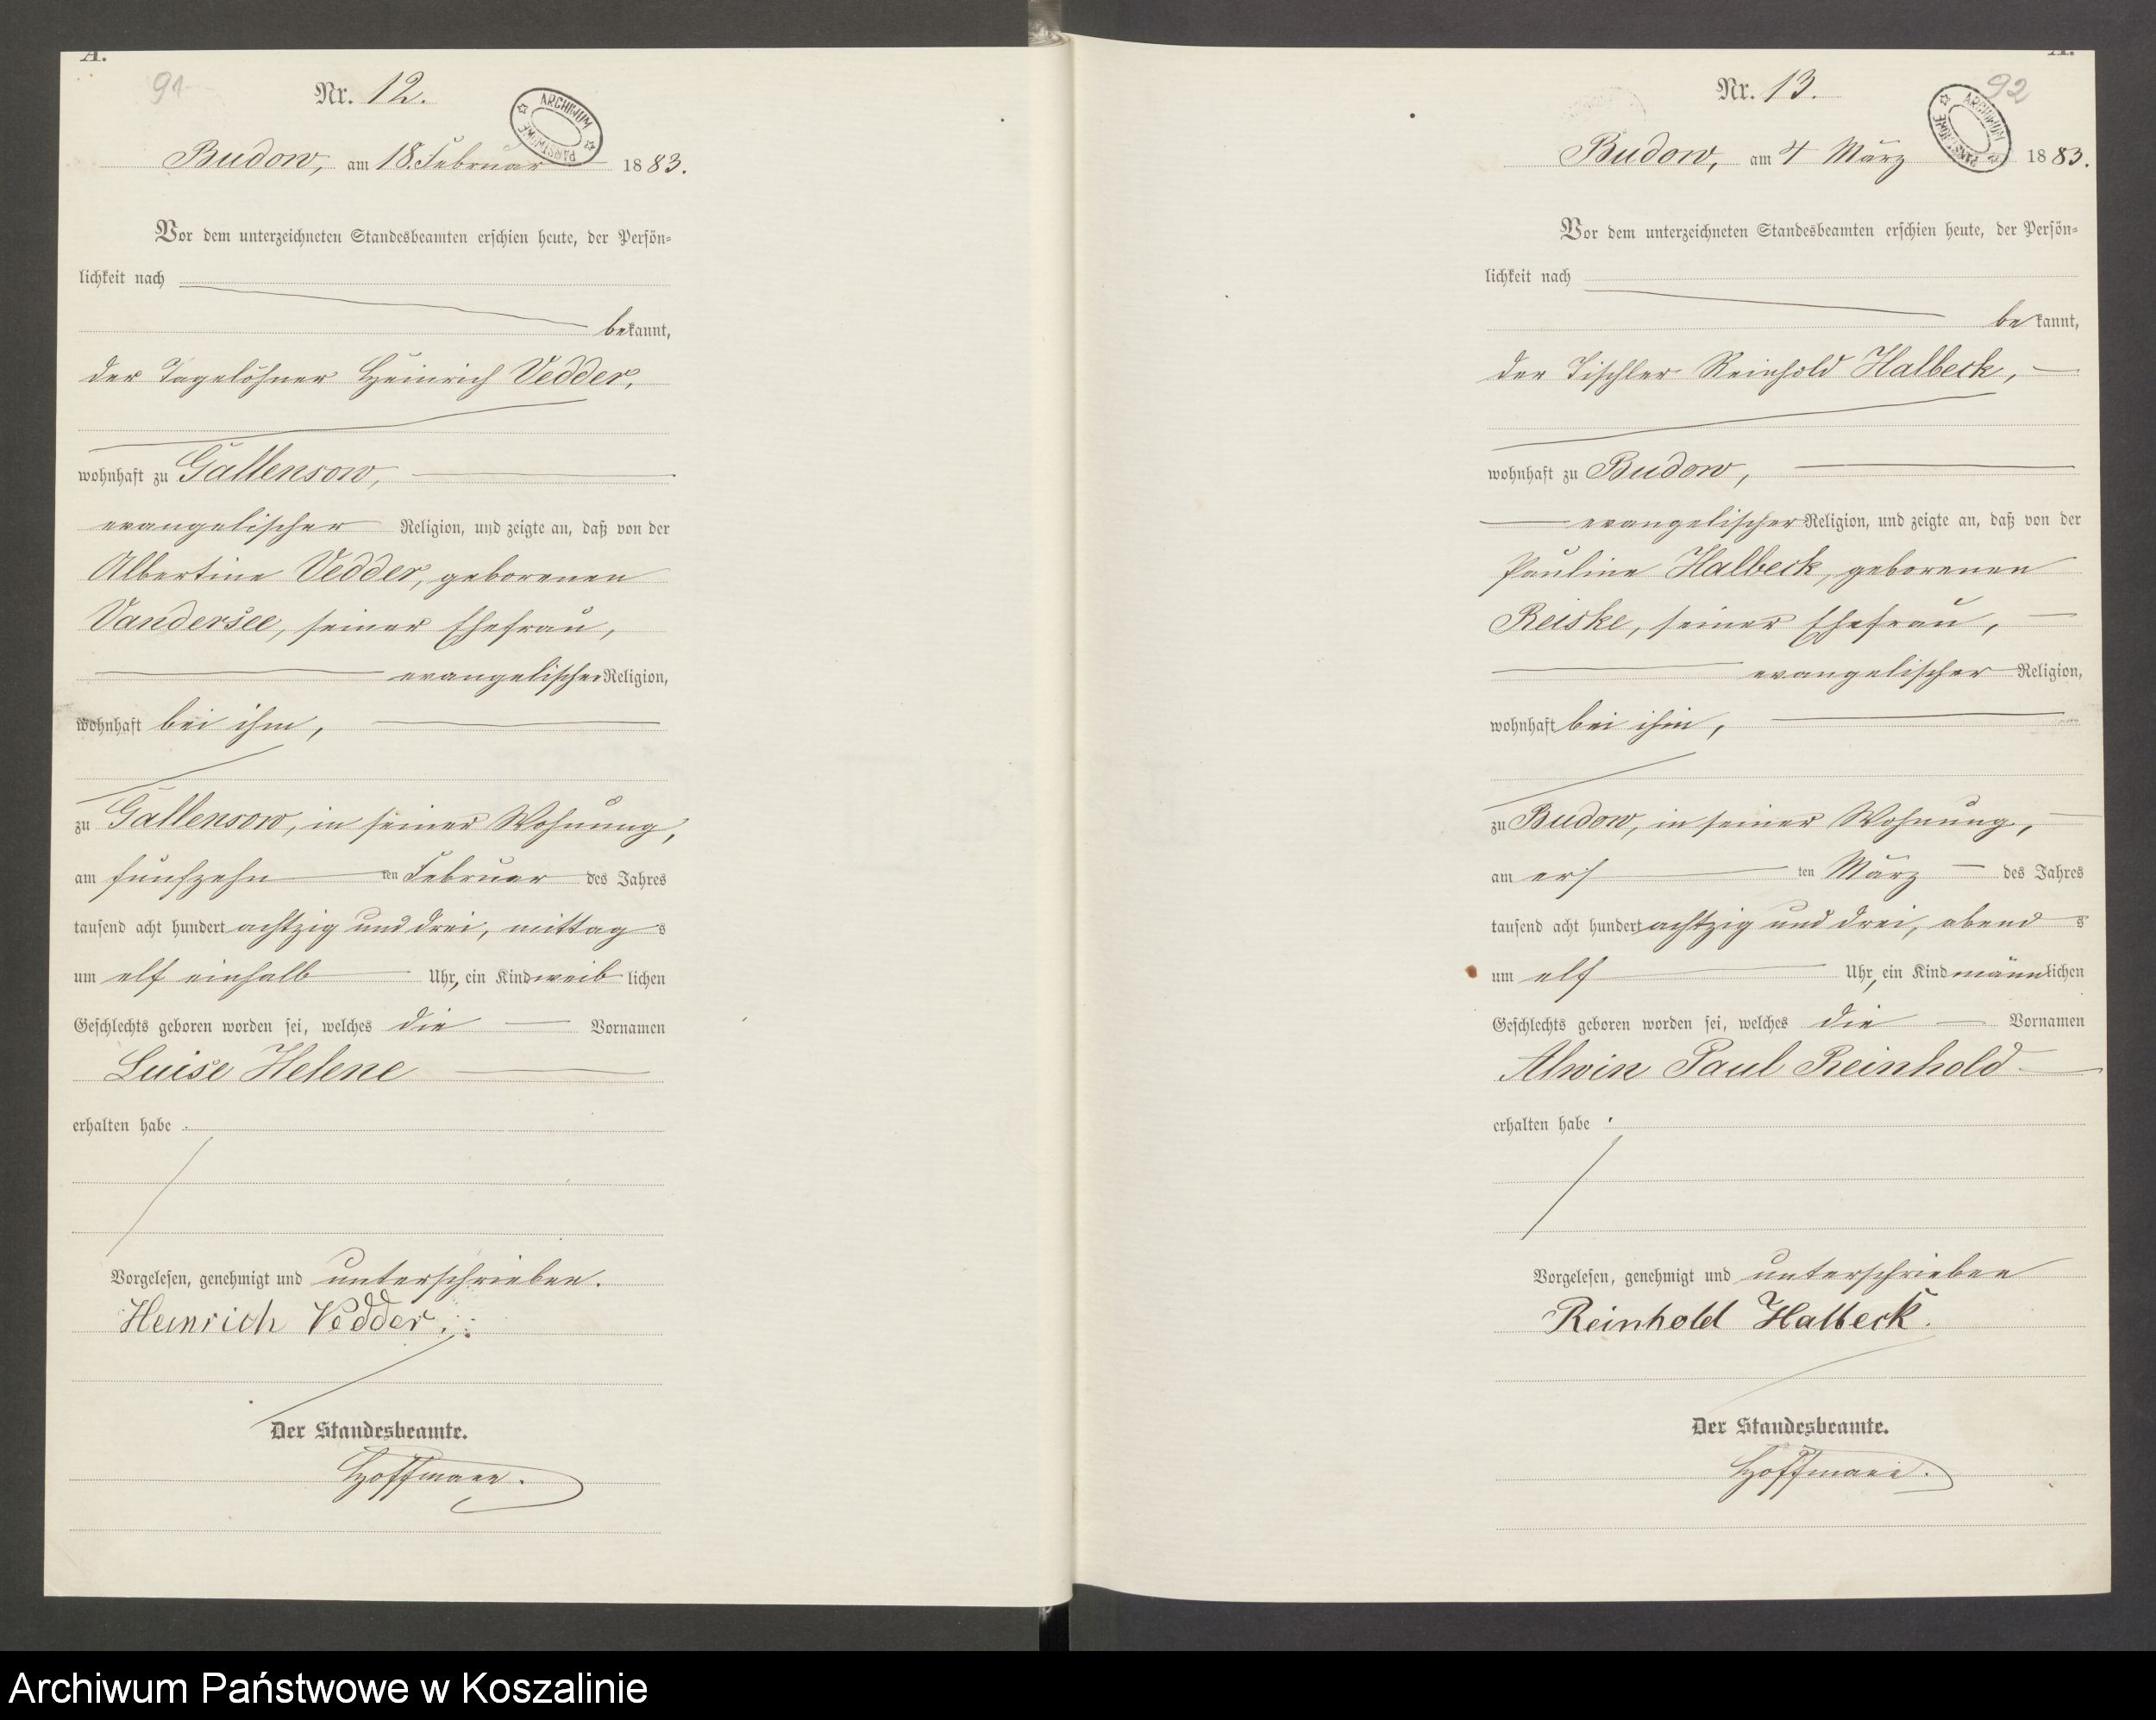 A.
91
Nr. 12.
ARCHIWUM PAŃSTWOWE
Budow, am 18. Februar 1883.
Vor dem unterzeichneten Standesbeamten erschien heute, der Persön-
lichkeit nach
bekannt,
der Tagelöhner Heinrich Vedder,
wohnhaft zu Gallensow,
evangelischer Religion, und zeigte an, daß von der
Albertine Vedder, geborenen
Vandersee, seiner Ehefrau,
evangelischer Religion,
wohnhaft bei ihm,
zu Gallensow, in seiner Wohnung,
am fünfzehn ten Februar des Jahres
tausend acht hundert achtzig und drei, mittag s
um elf einhalb Uhr, ein Kind weib lichen
Geschlechts geboren worden sei, welches die Vornamen
Luise Helene
erhalten habe.
Vorgelesen, genehmigt und unterschrieben.
Heinrich Vedder.
Der Standesbeamte.
Hoffmann.
A.
92
Nr. 13.
ARCHIWUM PAŃSTWOWE
Budow, am 4 März 1883.
Vor dem unterzeichneten Standesbeamten erschien heute, der Persön-
lichkeit nach
bekannt,
der Tischler Reinhold Halbeck,
wohnhaft zu Budow,
evangelischer Religion, und zeigte an, daß von der
Pauline Halbeck, geborenen
Reiske, seiner Ehefrau,
evangelischer Religion,
wohnhaft bei ihm,
zu Budow, in seiner Wohnung,
am ers ten März des Jahres
tausend acht hundert achtzig und drei, abend s
um elf Uhr, ein Kind männlichen
Geschlechts geboren worden sei, welches die Vornamen
Alwin Paul Reinhold
erhalten habe.
Vorgelesen, genehmigt und unterschrieben
Reinhold Halbeck.
Der Standesbeamte.
Hoffmann.
Archiwum Państwowe w Koszalinie